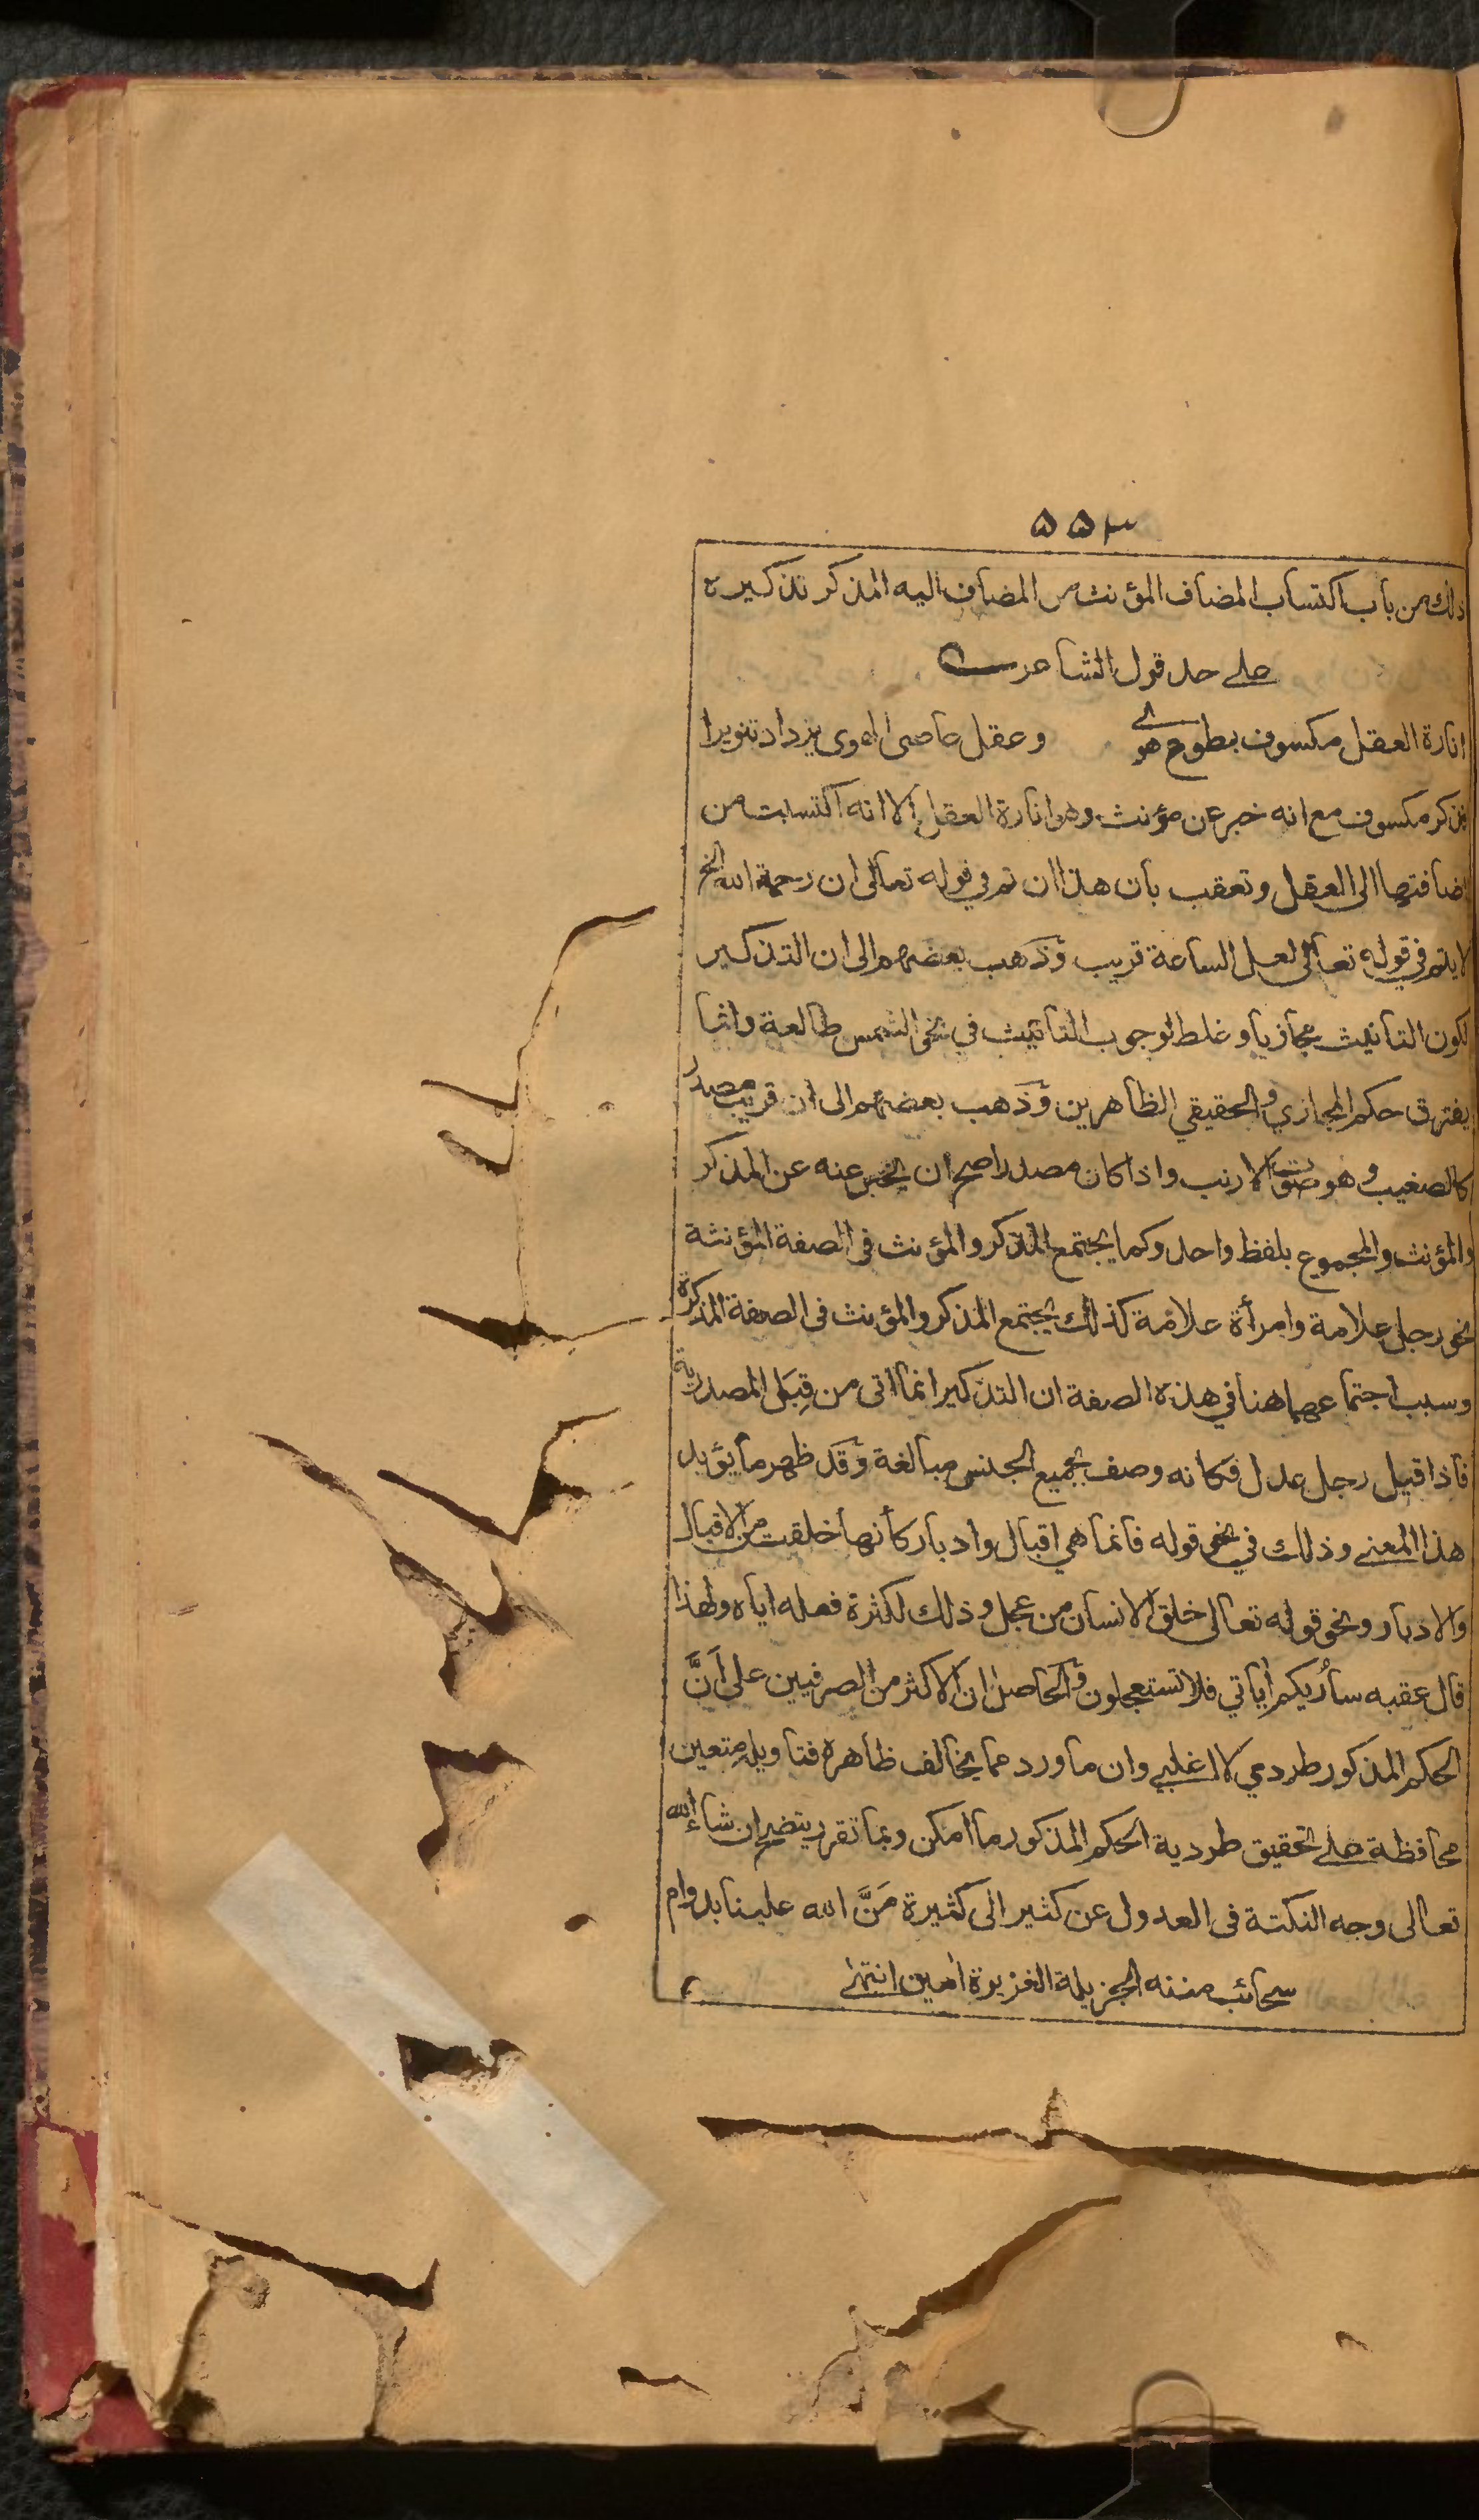 ۵۵۳
ذلك من باب اكتساب المضاف المؤنث من المضاف اليه المذكر تذكيره
علے حد قول الشاعر
انارة العقل مكسوف بطوع هوے وعقل عاصى الهوى يزداد تنويرا
فذكر مكسوف مع انه خبر عن مؤنث وهو انارة العقل الا انه اكتسابت من
اضافتها الى العقل وتعقب بان هذا ان تم في قوله تعالى ان رحمة الله الخ
لا يتم في قوله تعالى لعل الساعة قريب وذهب بعضهم الى ان التذكير
لكون التانيث مجازيا وغلط لوجوب التانيث في نحو الشمس طالعة وانما
يفترق حكم المجازي والحقيقي الظاهرين وذهب بعضهم الى ان قريب مصدر
كالصغيب وهو صوت الارنب واذا كان مصدرا صح ان يخبر عنه عن المذكر
والمؤنث والمجموع بلفظ واحد وكما يجتمع المذكر والمؤنث فى الصفة المؤنثة
نحو رجل علامة وامرأة علامة كذلك يجتمع المذكر والمؤنث فى الصفة المذكرة
وسبب اجتماعهما هنا في هذه الصفة ان التذكير انما اتى من قِبَل المصدرية
فاذا قيل رجل عدل فكانه وصف بجميع الجنس مبالغة وقد ظهر ما يؤيد
هذا المعنے وذلك في نحو قوله فانما هي اقبال وادبار كأنها خلقت من الاقبال
والادبار ونحو قوله تعالى خلق الانسان من عجل وذلك لكثرة فعله اياه ولهذا
قال عقبه سأُريكم أياتي فلا تستعجلون والحاصل ان الاكثر من الصرفيين على أَنَّ
الحكم المذكور طردي لا اغلبے وان ما ورد مما يخالف ظاهره فتاويله متعين
محافظة علے تحقيق طردية الحكم المذكور ما امكن وبما تقرر يتضح ان شاء الله
تعالى وجه النكتة فى العدول عن كثير الى كثيرة مَنَّ الله علينا بدوام
سحائب مننه الجزيلة الغزيرة امين انتهے